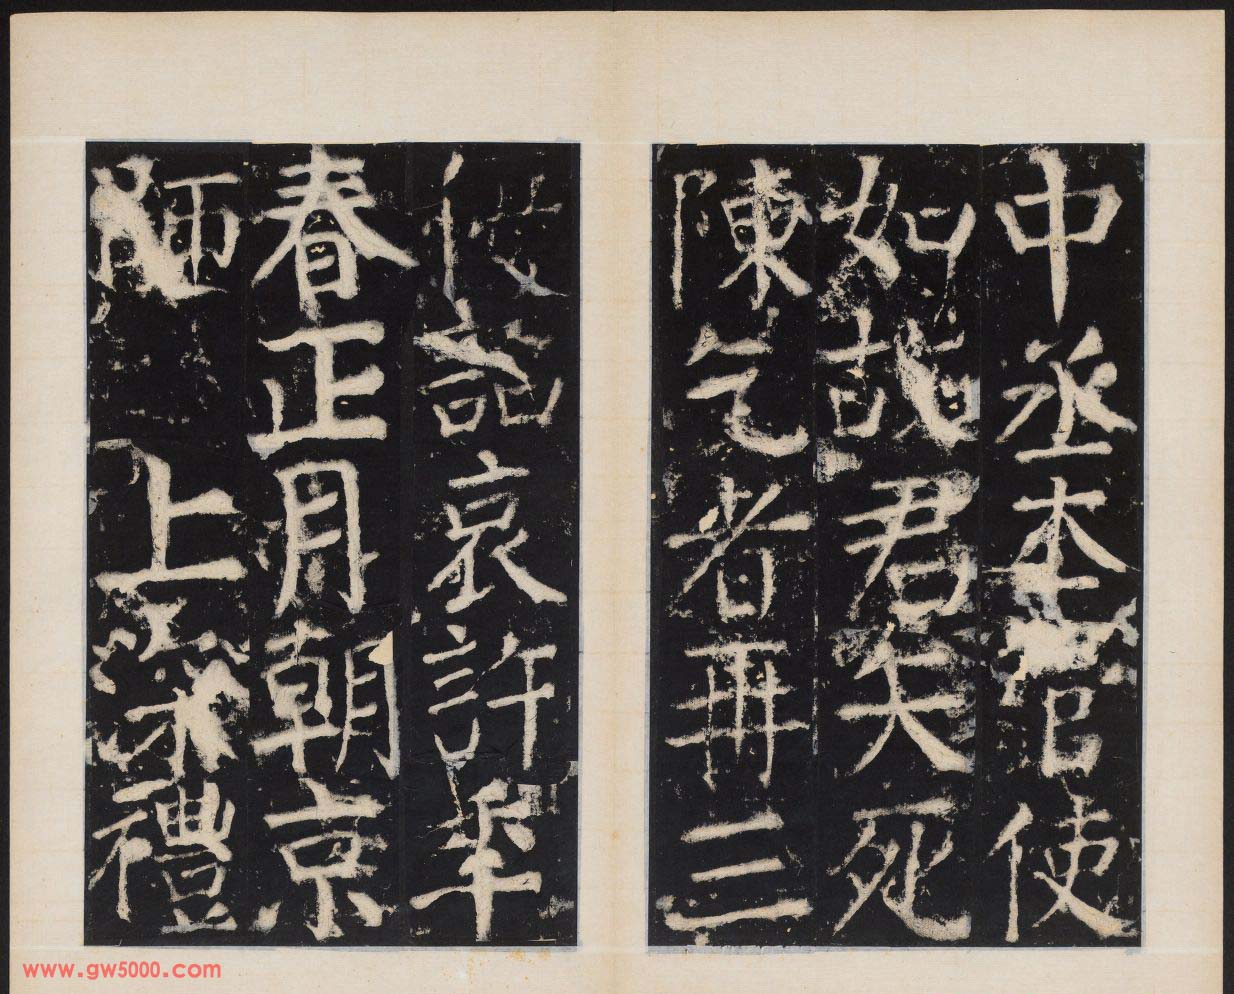 中丞本管使
如故君矢死
陳乞者再三
優詔褒許年
春正月朝京
師上深禮
www.gw5000.com